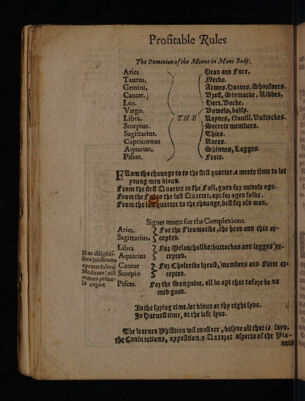 Profitable Rules
The Dominion of the Moone in Mans Body.
Aries Head and Face.
Taurus. Necke.
Gemini, Armes, Handes, Shoulders.
Cancer, Brest, Stomacke, Ribbes,
Leo. Hart, Backe.
Virgo. Bowels, belly.
Libra. THE Raynes, Nauill, Buttockes.
Scorpio. Secrete members.
Sagittarius, Thies.
Capricornus Knees.
Aquarius, Shinnes, Legges.
Pisces. Feete.
FRom the chaunge to the first quarter, a meete time to let
young men bloud.
From the first Quarter to the Full, good for middle age.
From the Full to the last quarter, apt for aged folke.
From the last quarter to the chaunge, best for old men.
Signes meete for the Complexions.
Aries. For the Fleumatike, the head and thies ex-
Sagittarius, cepted.
Libra For Melancholike: buttockes and legges ex-
Aquarius cepted.
Cancer For Cholerike brest, members and Feete ex-
Scorpio cepted.
Pisces. For the Sanguine, all be apt that before be na
med good.
In the spring time, let bloud at thy right syde.
In Haruest time, at the left syde.
The learned Phisition wil consider, besyde all that is sayd,
the Coniunctions, opposition, & Quadrat aspects of the Pla-
nets